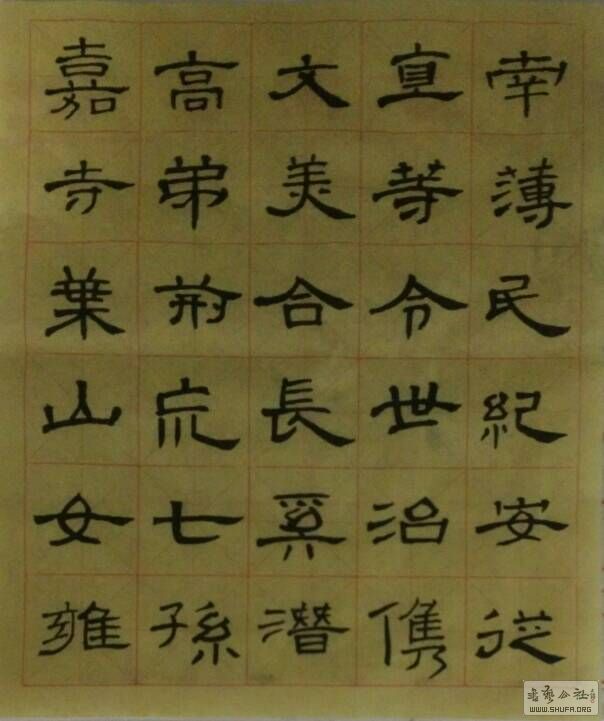 薄民紀安從
宣等令世治儁
文美合長潛
高弟荊七孫
嘉寺葉山女雍
書藝公社
WWW.SHUFA.ORG